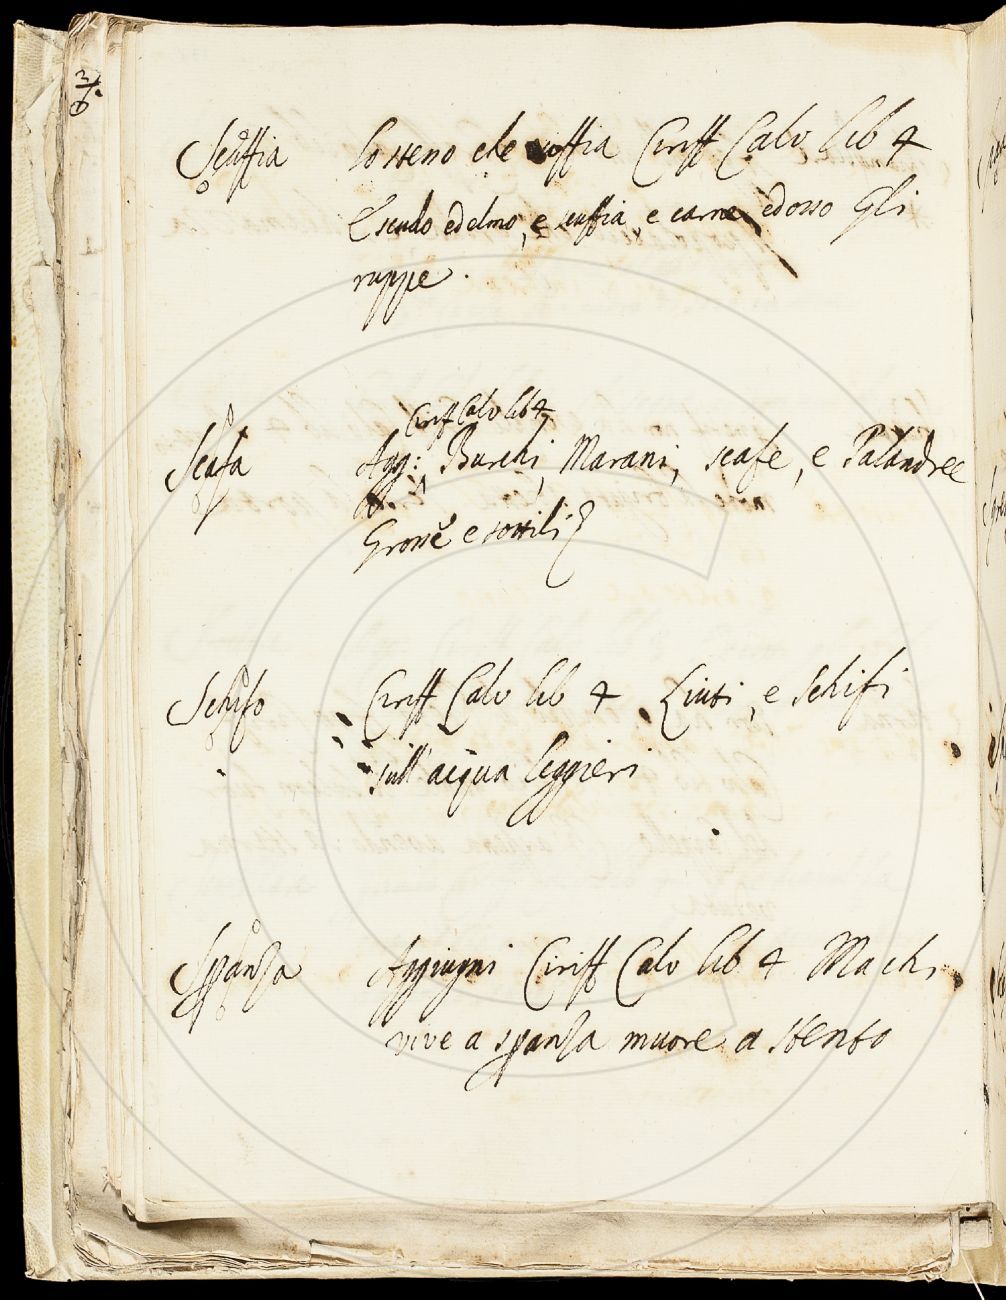 Scuffia Lo steno che cuffia Ciriff Calv lib 4
E scudo ed elmo, e scuffia, e carne, ed osso Gli
ruppe.
Ciriff Calv lib 4
Scafa Agg: Burchi, Marani, scafe, e Palandree
Grosse e sottili
Schifo Ciriff Calv lib 4 Liuti, e schifi
sull'acqua leggieri
Spanza Aggiugni Ciriff Calv lib 4 Ma chi
vive a spanza muore a stento